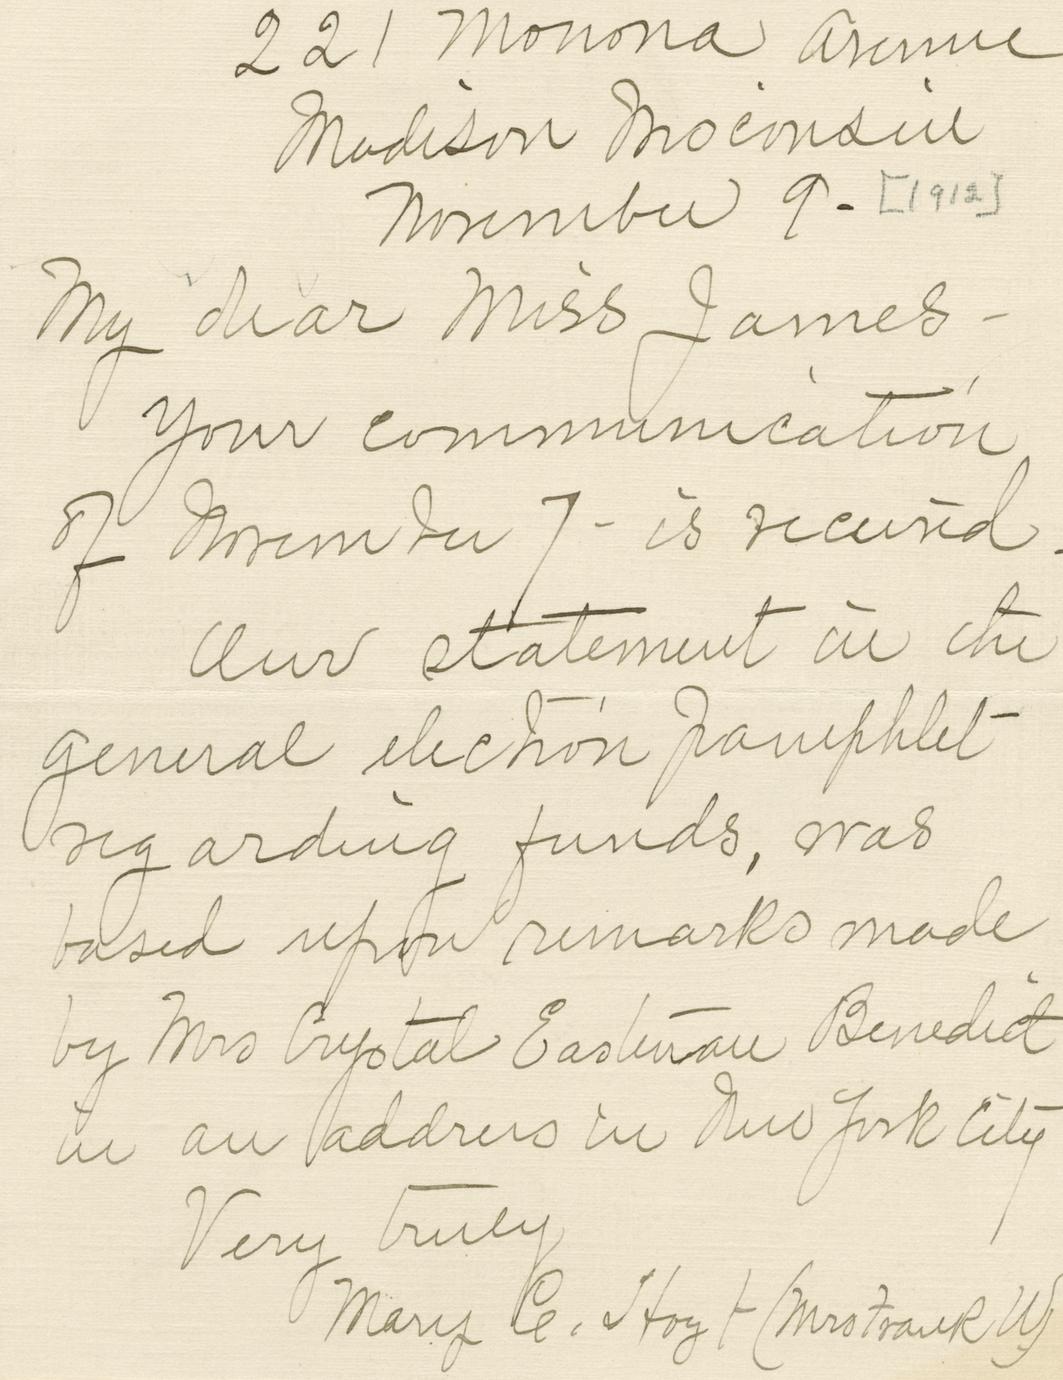 221 Monona Avenue
Madison Wisconsin
November 9 - [1912]
My dear Miss James -
Your communication
of November 7 - is received.
Our statement in the
general election pamphlet
regarding funds, was
based upon remarks made
by Mrs Crystal Eastman Benedict
in an address in New York City
Very truly
Mary C. Hoyt (Mrs Frank W)